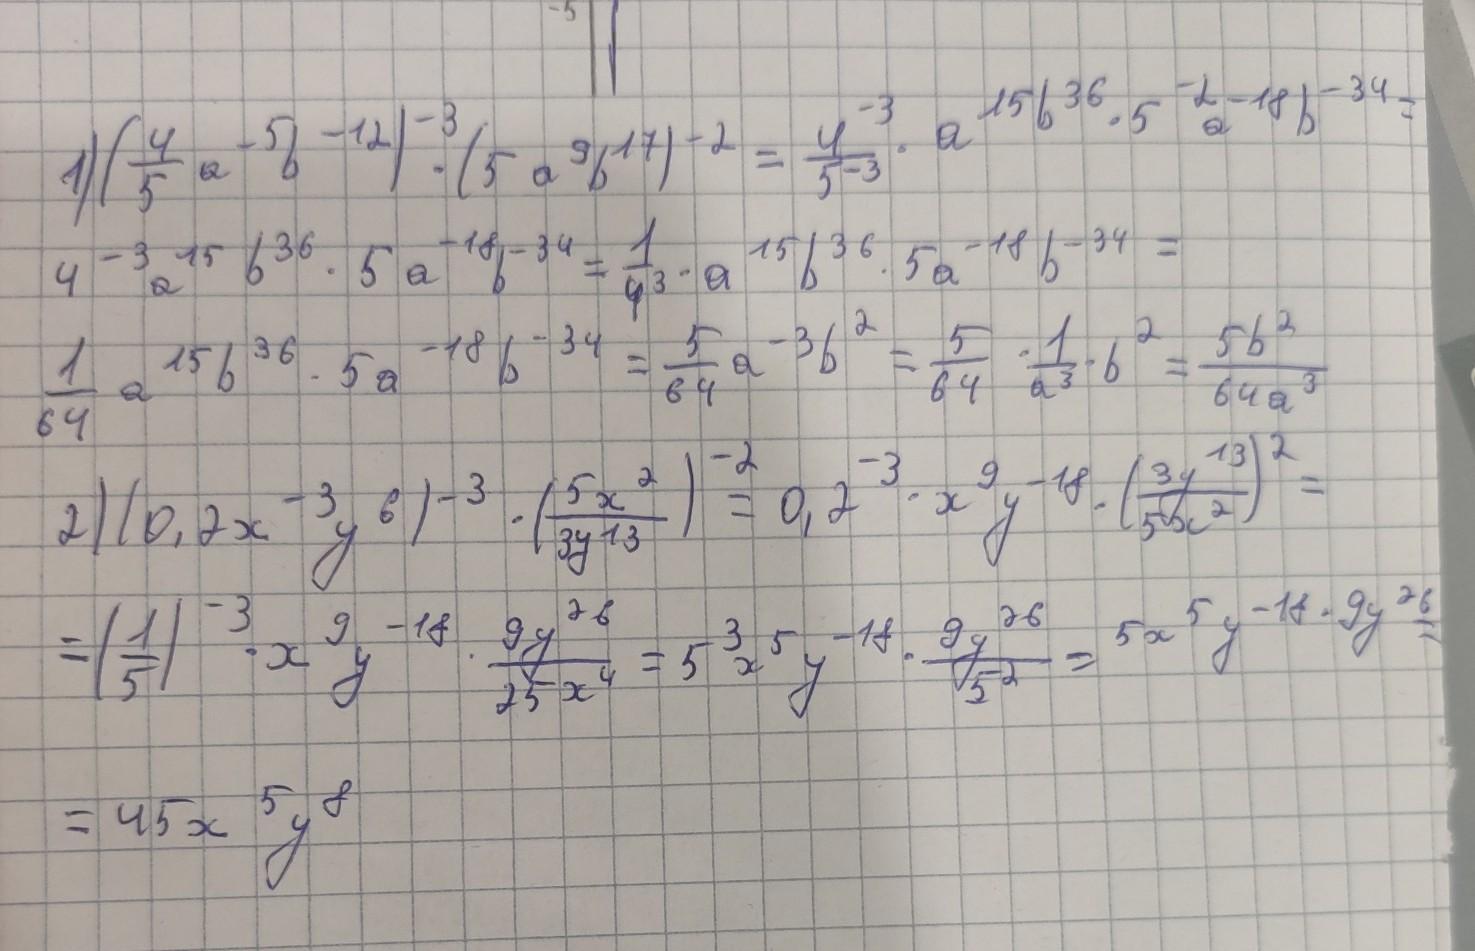 -5
1) (4/5 a^-5 b^-12)^-3 · (5 a^9 b^17)^-2 = 4^-3/5^-3 · a^15 b^36 · 5^-2 a^-18 b^-34 =
4^-3 a^15 b^36 · 5 a^-18 b^-34 = 1/4^3 · a^15 b^36 · 5a^-18 b^-34 =
1/64 a^15 b^36 · 5a^-18 b^-34 = 5/64 a^-3 b^2 = 5/64 · 1/a^3 · b^2 = 5b^2/64a^3
2) (0,2x^-3 y^6)^-3 · (5x^2/3y^13)^-2 = 0,2^-3 · x^9 y^-18 · (3y^13/5x^2)^2 =
= (1/5)^-3 · x^9 y^-18 · 9y^26/25x^4 = 5^3 x^5 y^-18 · 9y^26/5^2 = 5x^5 y^-18 · 9y^26 =
= 45x^5 y^8